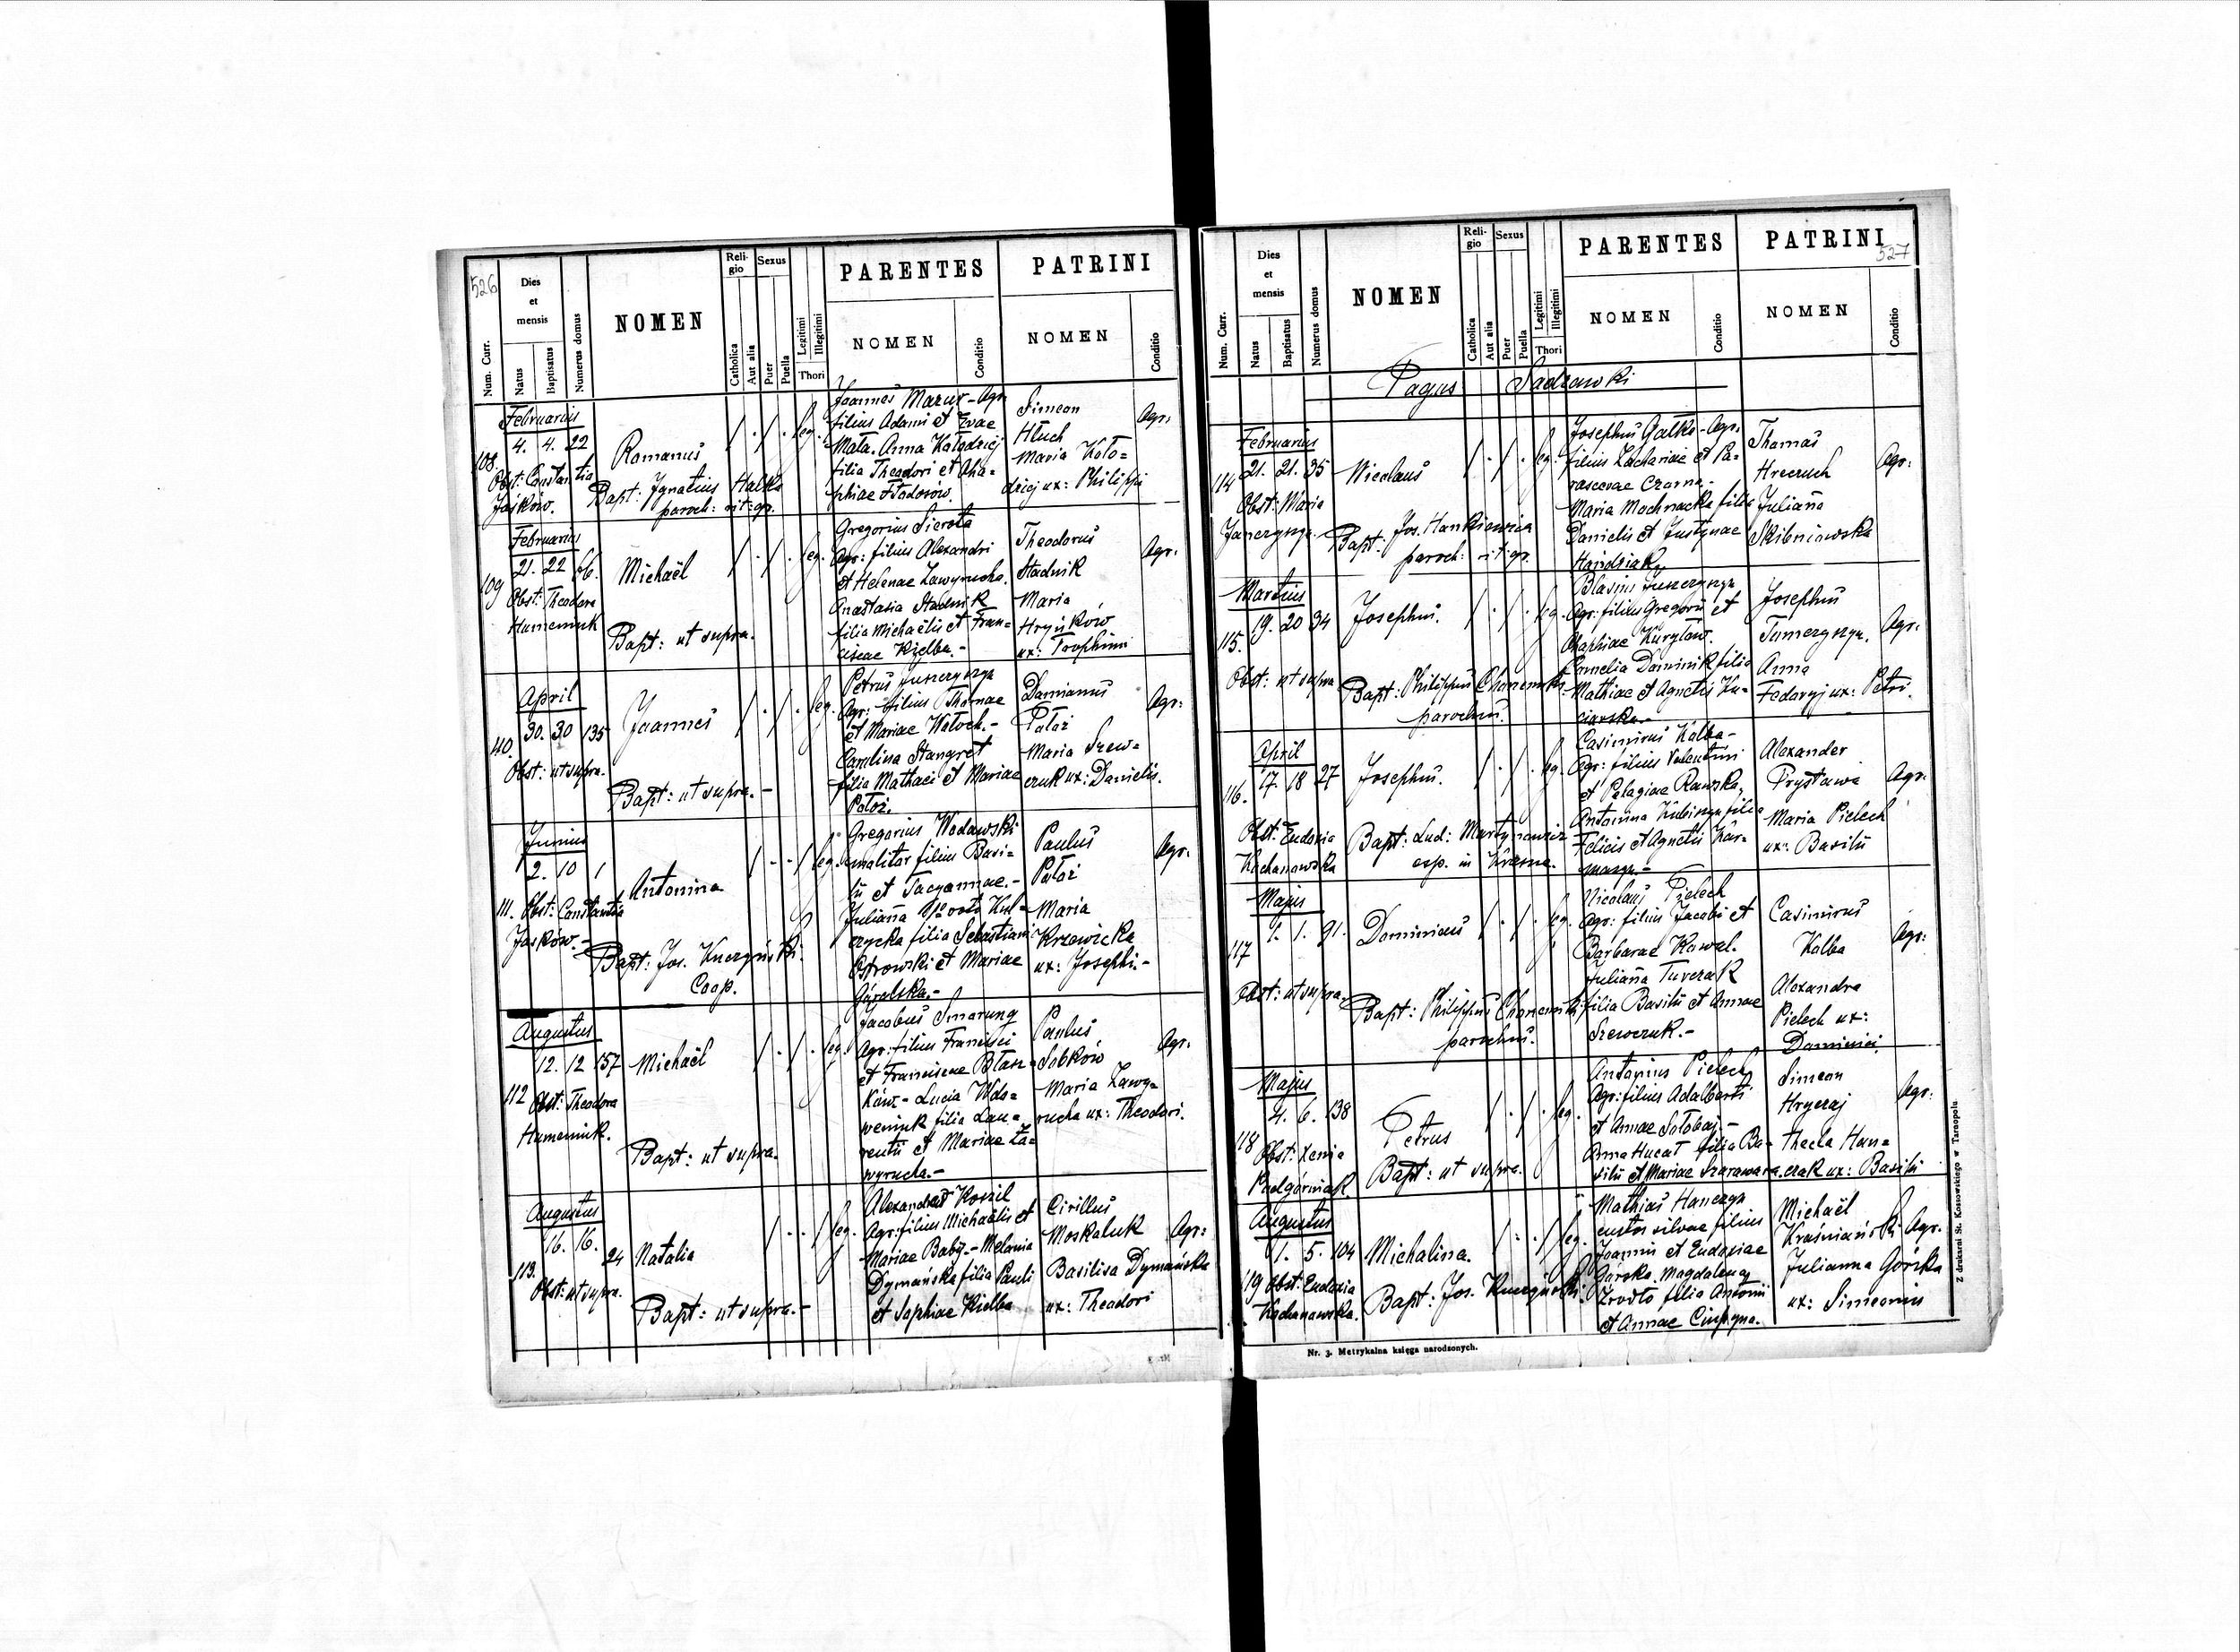 526
Num. Curr.
Dies
et
mensis
Natus
Baptisatus
Numerus domus
NOMEN
Reli-
gio
Catholica
Aut alia
Sexus
Puer
Puella
Legitimi
Illegitimi
Thori
PARENTES
NOMEN
Conditio
PATRINI
NOMEN
Conditio
108
Februarius
4. 4. 22
Obst: Constantia
Jaśków.
Romanus
Bapt: Ignatius Halka
paroch: rit: gr.
leg.
Joannes Mazur - Agr.
filius Adami et Evae
Mata. Anna Kołodziej
filia Theodori et Aha-
phiae Fłodosów.
Simeon
Hłuch
Maria Koło-
dziej ux: Philippi
Agr:
109
Februarius
21. 22
Obst: Theodora
Humeniuk
Michaël
Bapt: ut supra.
leg.
Gregorius Sierota
Agr: filius Alexandri
et Helenae Zawyrucha.
Anastasia Stadnik
filia Michaëlis et Fran-
ciscae Kiełba.-
Theodorus
Stadnik
Maria
Hryńków
ux: Trophimi
Agr:
110.
April
30. 30 135
Obst: ut supra.
Joannes
Bapt: ut supra. -
leg.
Petrus Juszczyszyn
Agr: filius Thomae
et Mariae Wołoch.-
Carolina Stangret
filia Mathaei et Mariae
Położ.
Damianus
Położ
Maria Szew-
czuk ux: Danielis.
Agr:
111.
Junius
2. 10 1
Obst: Constantia
Jasków.-
Antonina
Bapt: Jos. Kuczyński
Coop.
leg.
Gregorius Wodawski
molitor filius Basi-
lii et Tacyannae.-
Juliana
czycka filia Sebastiani
Ostrowski et Mariae
Góralska.-
Paulus
Położ
Maria
Krzewicka
ux: Josephi.-
Agr:
112
Augustus
12. 12 157
Obst: Theodora
Humeniuk.
Michaël
Bapt: ut supra.
leg.
Jacobus Smarung
Agr: filius Francisci
et Franciscae Błasz-
ków - Lucia Wdo-
weniuk filia Lau-
rentii et Mariae Za-
wyrucha.-
Paulus
Sobków
Maria Zawy-
rucha ux: Theodori.
Agr:
113.
Augustus
16. 16. 24
Obst: ut supra.
Natalia
Bapt: ut supra. -
leg.
Alexander Koszil
Agr: filius Michaëlis et
Mariae Babij.- Melania
Dymańska filia Pauli
et Sophiae Kiełba
Cirillus
Moskaluk
Basilisa Dymańska
ux: Theodori
Agr:
527
Num. Curr.
Dies
et
mensis
Natus
Baptisatus
Numerus domus
NOMEN
Reli-
gio
Catholica
Aut alia
Sexus
Puer
Puella
Legitimi
Illegitimi
Thori
PARENTES
NOMEN
Conditio
PATRINI
NOMEN
Conditio
Pagus Sadzawki
114
Februarius
21. 21. 35
Obst: Maria
Nicolaus
Bapt: Jos. Hankiewicz
paroch: rit: gr.
leg.
Josephus Gałka - Agr.
filius Zachariae et Pa-
rascevae Czarna.-
Maria Mochnacka filia
Danielis et Justynae
Thomas
Hreczuch
Juliana
Skibniowska
Agr:
115.
Martius
19. 20 34
Obst: ut supra
Josephus.
Bapt: Philippus
parochus.
leg.
Blasius Juszczyszyn
Agr: filius Gregorii et
Ahaphiae Kuryłów.
Cornelia Dominik filia
Mathiae et Agnetis Ku-
ciarska.-
Josephus
Anna
Fedoryj ux: Petri.
Agr:
116.
April
17. 18 27
Obst: Eudoxia
Kochanowska
Josephus.
Bapt: Lud: Martynowicz
exp. in Krasne.
leg.
Casimirus Kolba-
Agr: filius Valentini
et Pelagiae Rawska,
Antonina Kubiszyn filia
Felicis et Agnetis Kar-
Alexander
Prystawa
Maria Pielech
ux: Basilii
Agr:
117
Majus
1. 1. 91.
Obst: ut supra.
Dominicus
Bapt: Philippus
parochus.
leg.
Nicolaus Pielech
Agr: filius Jacobi et
Barbarae Kowal.
Juliana Turczak
filia Basilii et Annae
Szewczuk.-
Casimirus
Kolba
Alexandra
Pielech ux:
Dominici.
Agr:
118
Majus
4. 6. 138
Obst: Xenia
Podgórniak
Petrus
Bapt: ut supra.
leg.
Antonius Pielech
Agr: filius Adalberti
et Annae Sołobaj.-
Anna Hucał filia Ba-
silii et Mariae Szarawara.
Simeon
Hryczaj
Thecla Han-
czak ux: Basilii
Agr:
119
Augustus
1. 5. 104
Obst: Eudoxia
Kochanowska.
Michalina.
Bapt: Jos. Kuczyński
leg.
Mathias Hanczyn
custos silvae filius
Joannis et Eudoxiae
Górska. Magdalena
Zrodło filia Antonii
et Annae Ciupyna.
Michaël
Kraśniański
Julianna Górska
ux: Simeonis
Agr.
Nr. 3. Metrykalna księga narodzonych.
Z drukarni St. Kossowskiego w Tarnopolu.